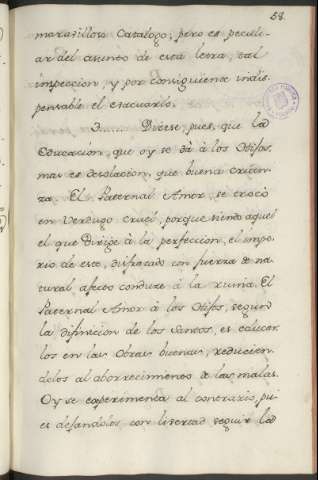 58.
maravilloso Catalogo; pero es peculi-
ar del asunto de esta letra, tal
inspeccion, y por consiguiente indis-
pensable el evacuarlo.
Dicese, pues, que la
Educacion, que oy se dà à los Hijos,
mas es desolacion, que buena crian-
za. El Paternal Amor, se trocò
en Verdugo cruel, porque siendo aquel
el que dirige à la perfeccion, el impe-
rio de este, disfrazado con fuerza de na-
tural afecto conduze à la ruina. El
Paternal Amor à los Hijos, segun
la difinicion de los Santos, es educar-
los en las Obras buenas, reducien-
dolos al aborrecimiento de las malas.
Oy se experimenta al contrario, pu-
es dejandoles con libertad seguir la